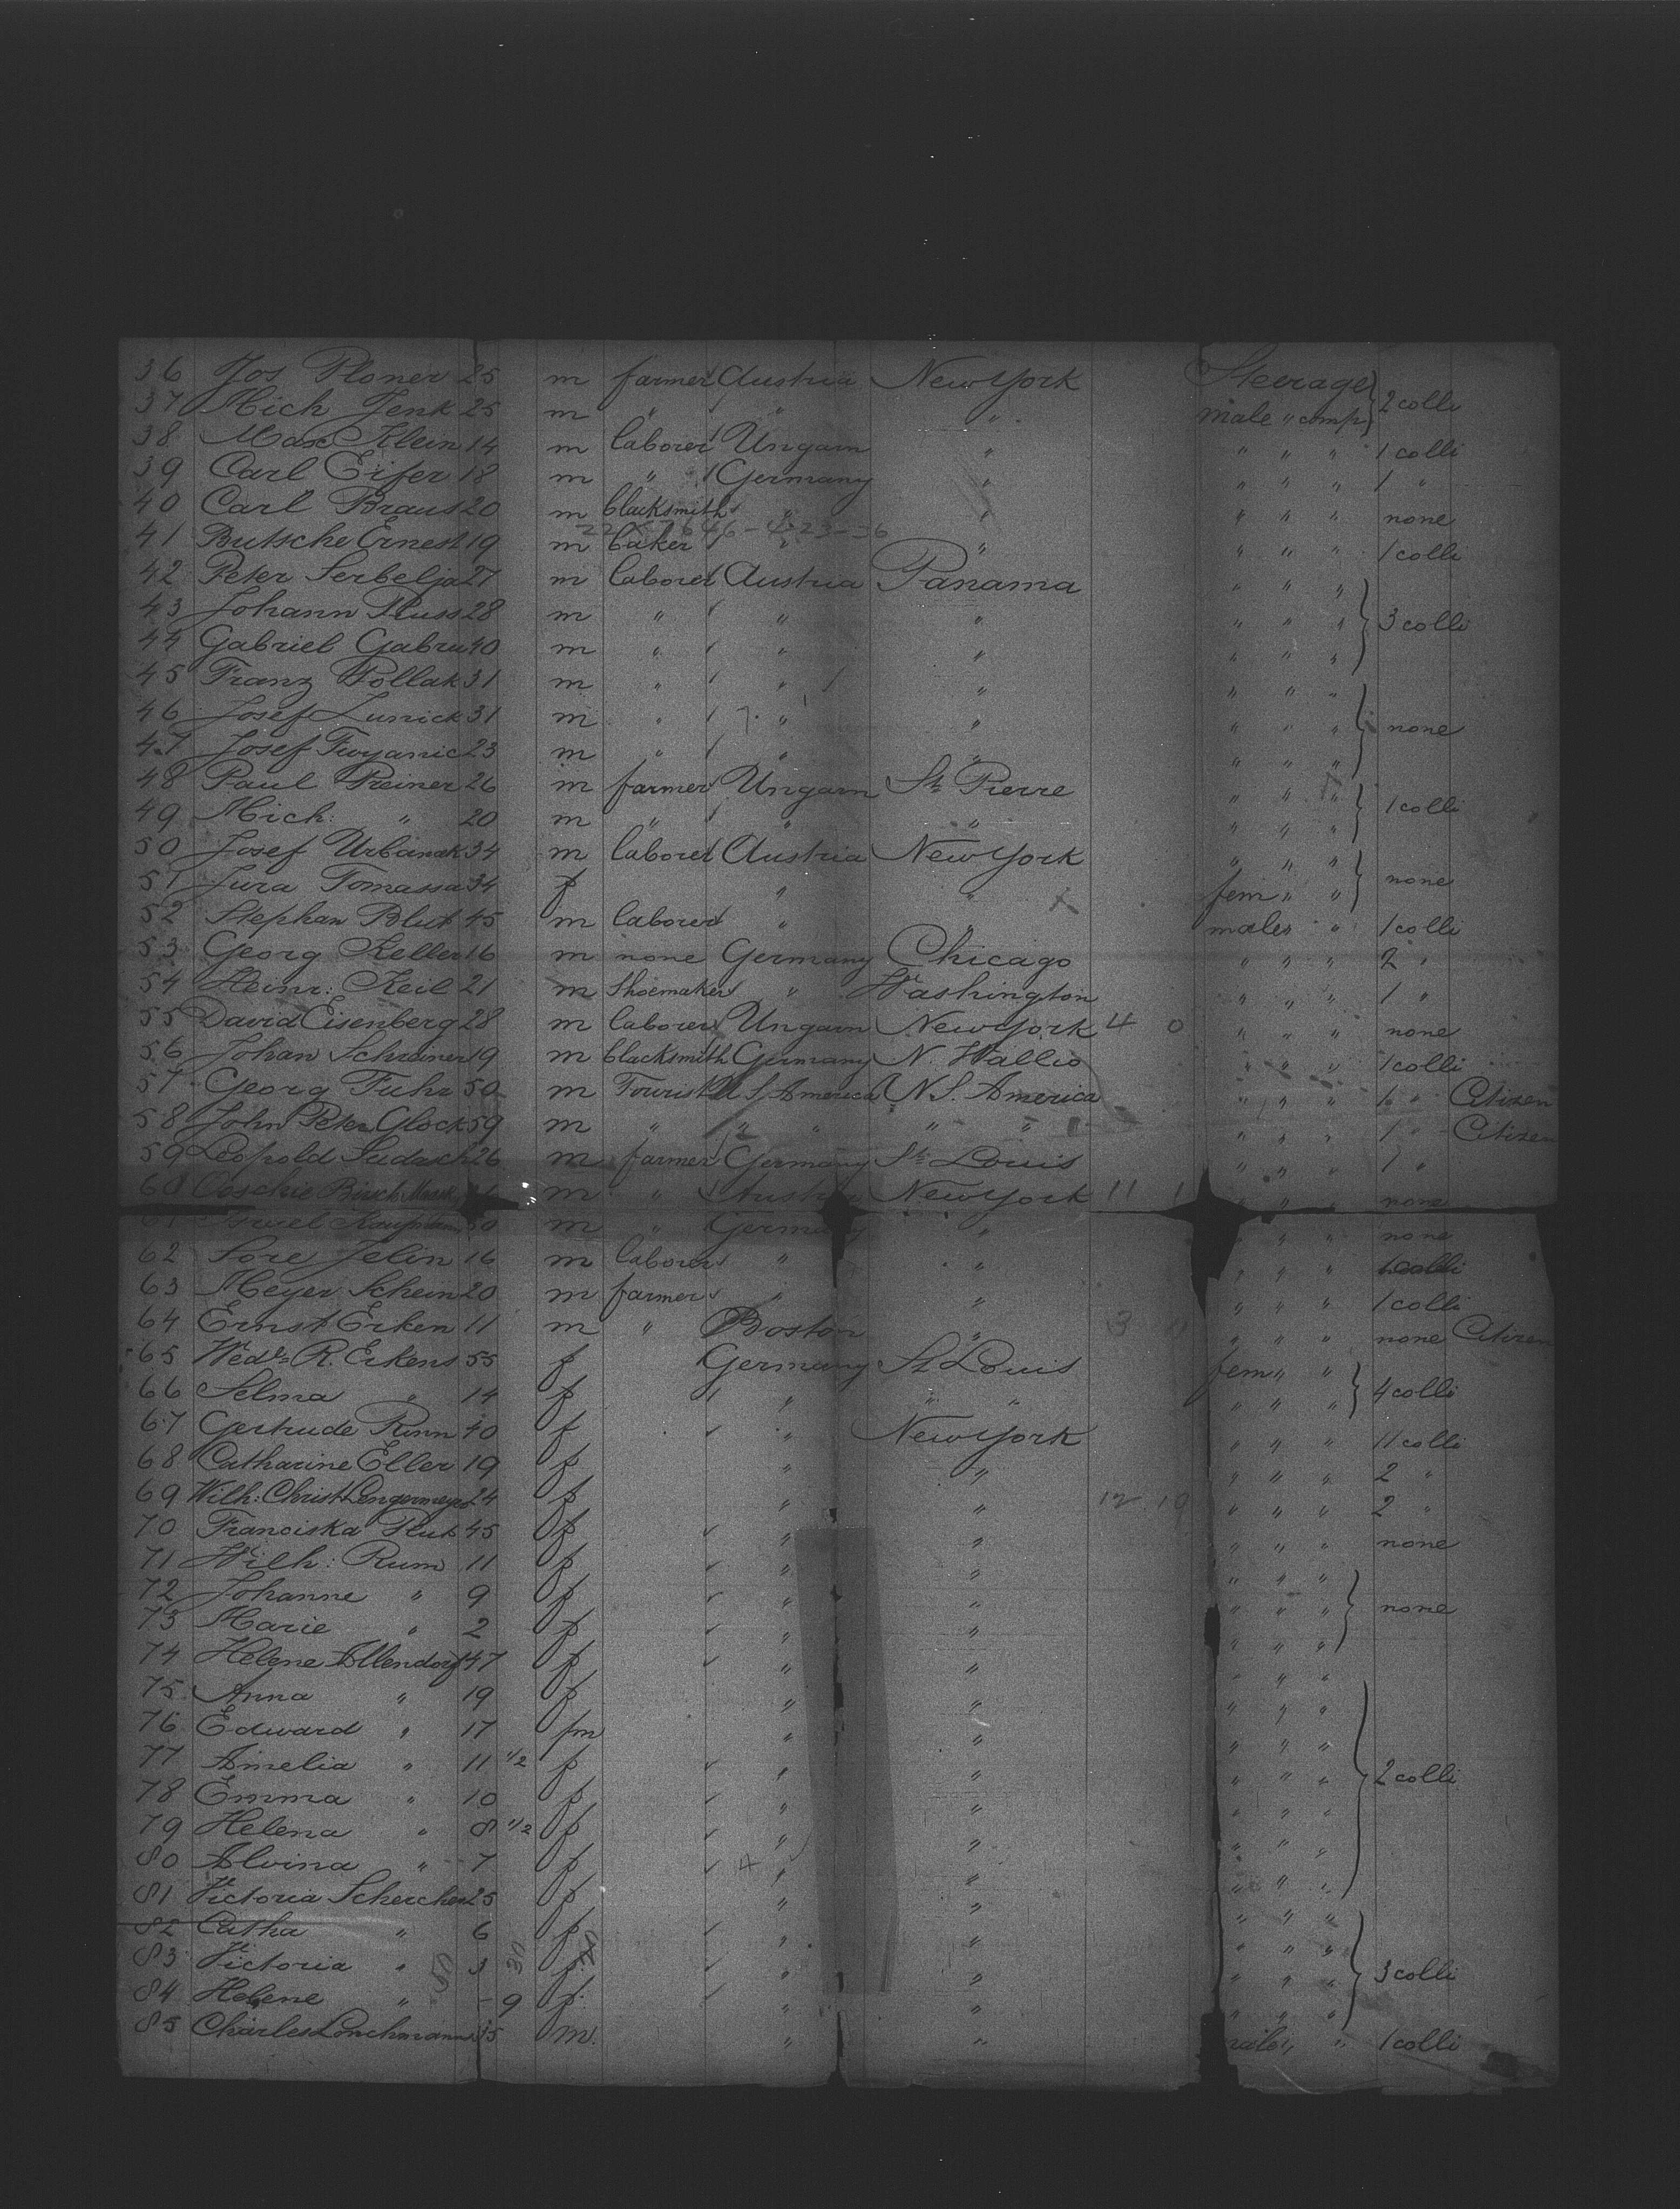 36 Jos Ploner 25 m farmer Austria New York Steerage
37 Mich Jenk 25 m " " " male " comp 2 colli
38 Max Klein 14 m laborer Ungarn " " " " 1 colli
39 Carl Eifer 18 m " Germany " " " " 1 "
40 Carl Braus 20 m blacksmith " " " " " none
22 X 7646-4-23-36
41 Butsche Ernest 19 m baker " " " " " 1 colli
42 Peter Serbelja 27 m laborer Austria Panama " " "
43 Johann Russ 28 m " " " " " " 3 colli
44 Gabriel Gabru 40 m " " " " " "
45 Franz Pollak 31 m " " " " " "
46 Josef Lunick 31 m " " " " " " none
47 Josef 23 m " " " " " "
48 Paul Preiner 26 m farmer Ungarn St. Pierre " " "
49 Mich: " 20 m " " " " " " 1 colli
50 Josef Urbanak 34 m laborer Austria New York " " "
51 Jura Tomassa 34 f " " fem " " none
52 Stephan Blut 45 m laborer " males " 1 colli
53 Georg Keller 16 m none Germany Chicago " " " 2 "
54 Heinr: Keil 21 m Shoemaker " Washington " " " 1 "
55 David Eisenberg 28 m laborer Ungarn New York 4 0 " " " none
56 Johan Schreiner 19 m blacksmith Germany N. Wallio " " " 1 colli
57 Georg Fuhr 50 m Tourist U S America N S. America " " " 1 " Citizen
58 John Peter Glock 59 m " " " " " " " " 1 " Citizen
59 Leopold 26 m farmer Germany St. Louis " " " 1 "
60 m " Austria New York 11 1 " " " none
61 Israel m " Germany " " " " none
62 Sore Jelin 16 m laborer " " " " " 1 colli
63 Meyer Schein 20 m farmer " " " " " 1 colli
64 Ernst Erken 11 m " Boston " 3 " " " none Citizen
65 R. Erkens 55 f Germany St Louis fem " "
66 Selma " 14 f " " " " " " 4 colli
67 Gertrude Rinn 40 f " New York " " " 11 colli
68 Catharine Eller 19 f " " " " " 2 "
69 Wilh: Christ Lengermeyer 24 f " " 12 19 " " " 2 "
70 Franciska 45 f " " " " " none
71 Wilh: Rum 11 f " " " " "
72 Johanne " 9 f " " " " " none
73 Marie " 2 f " " " " "
74 Helene Allendorf 47 f " " " " "
75 Anna " 19 f " " " " "
76 Edward " 17 m " " " " "
77 Amelia " 11 1/2 f " " " " " 2 colli
78 Emma " 10 f " " " " "
79 Helena " 8 1/2 f " " " "
80 Alvina " 7 f " " " " "
81 Victoria Schercher 25 f " " " " "
82 Catha " 6 f " " " " "
83 Victoria " 3 f " " " " " 3 colli
84 Helene " - 9 f " " " " "
85 Charles m. " " male " " 1 colli